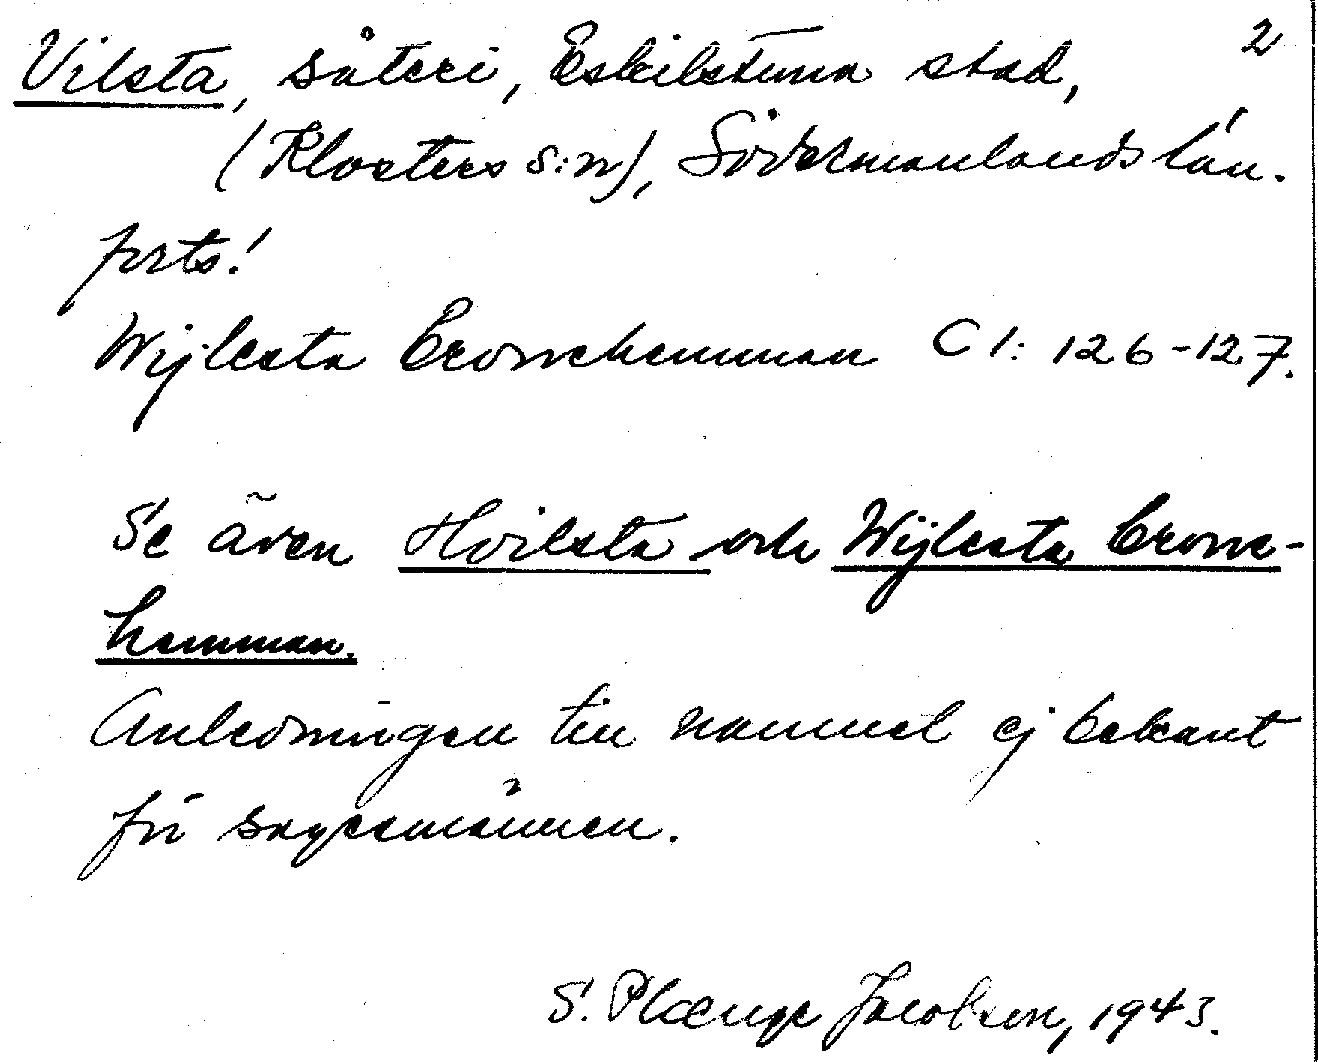 2
Vilsta, säteri, Eskilstuna stad,
(Klosters s:n), Södermanlands län.
forts.!
Wijlesta Cronehemman C1: 126-127.
Se även Hvilsta och Wijlesta Crone-
hemman.
Anledningen till namnet ej bekant
för sagesmännen.
S. Plænge Jacobson, 1943.